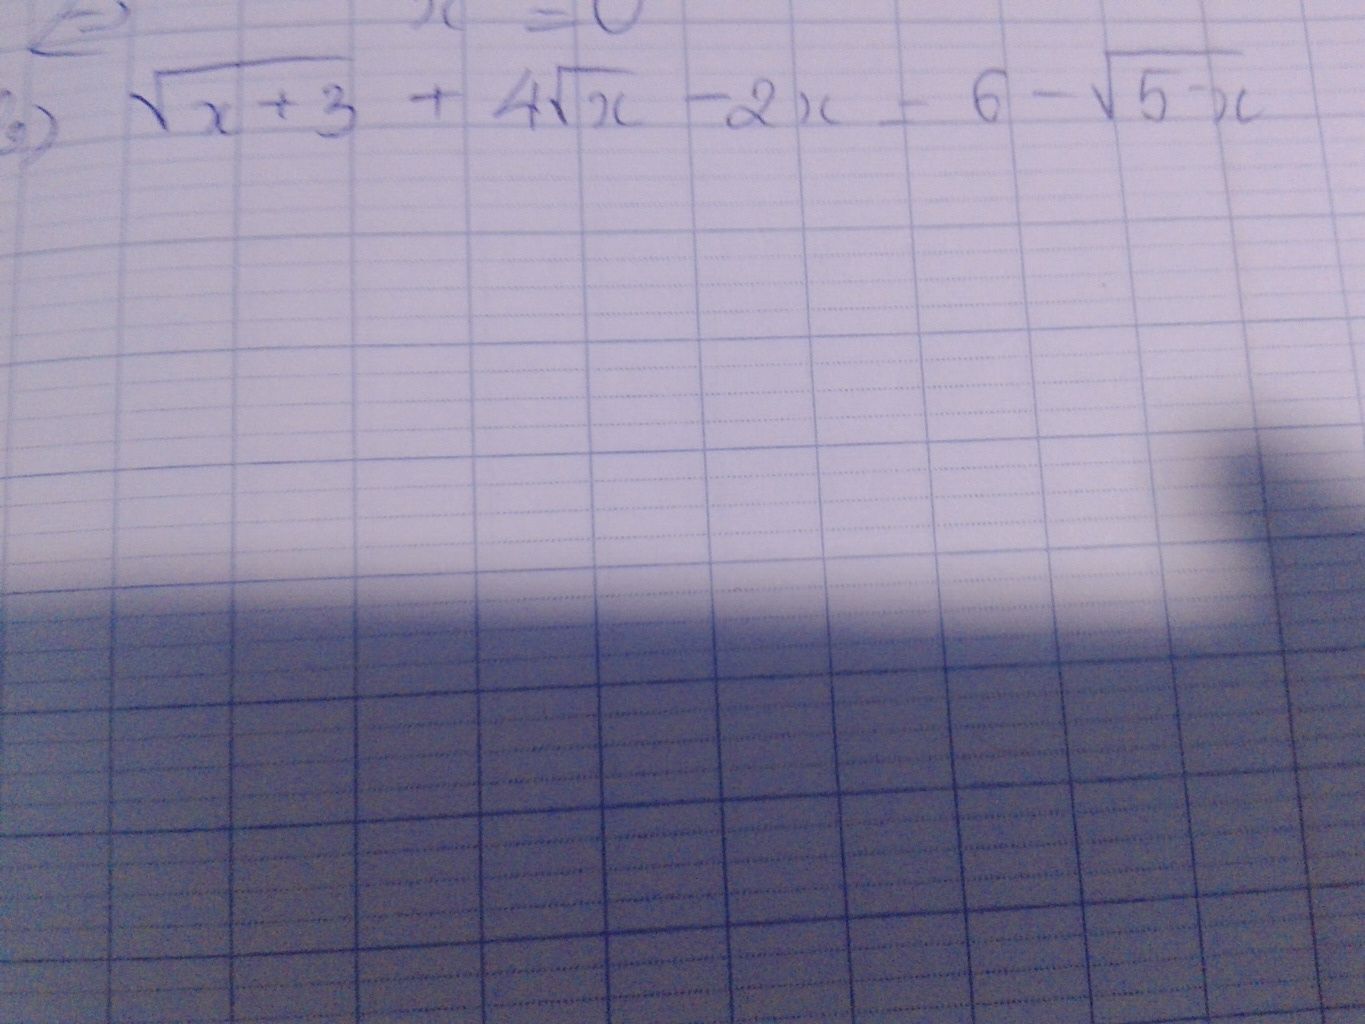 x = 0
3) √(x + 3) + 4√x - 2x = 6 - √(5-x)